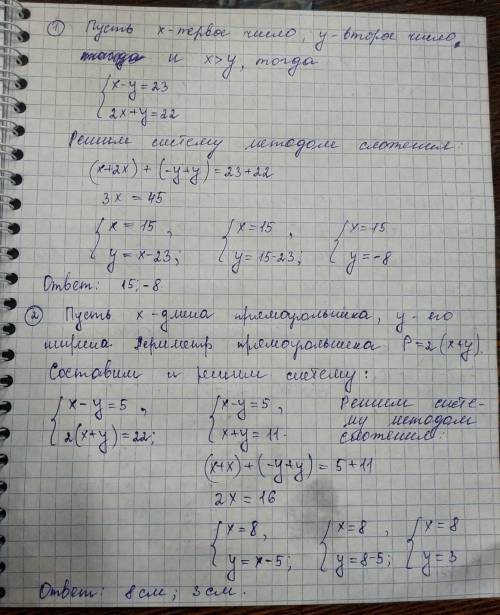 ① Пусть x - первое число, y - второе число,
и x>y, тогда
{ x-y=23
{ 2x+y=22
Решим систему методом сложения:
(x+2x) + (-y+y) = 23+22
3x = 45
{ x = 15 , { x=15 , { x=15
{ y = x-23; { y=15-23; { y=-8
Ответ: 15; -8.
② Пусть x - длина прямоугольника, y - его
ширина. Периметр прямоугольника P=2(x+y).
Составим и решим систему:
{ x-y=5 , { x-y=5 , Решим систе-
{ 2(x+y)=22; { x+y=11. му методом
сложения:
(x+x)+(-y+y) = 5+11
2x = 16
{ x=8, { x=8 , { x=8
{ y=x-5; { y=8-5; { y=3
Ответ: 8 см; 3 см.